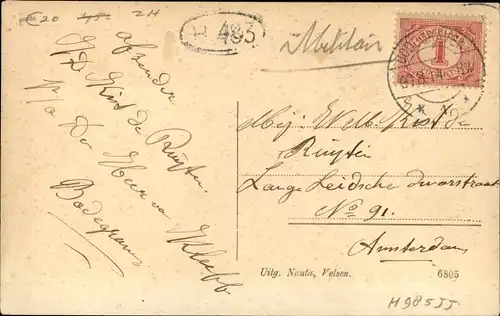 €20 45.- 2H
485
Militair
NEDERLAND
1
afzender
Kist de Ruijter
p/a De Heer v
Bodegrave
Mej. Wed. Kist de
Ruijter
Lange Leidsche dwarsstraat
No 91.
Amsterdam
Uitg. Nauta, Velsen.
6805
H985JJ